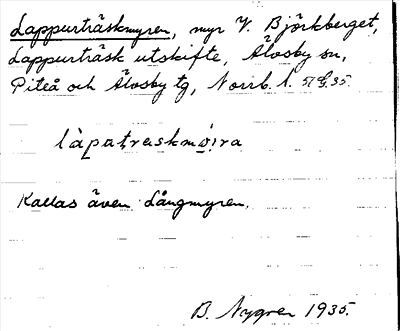 Lappurträskmyren, myr V. Björkberget,
Lappurträsk utskifte, Älvsby sn,
Piteå och Älvsby tg, Norrb. l.
làpatraskmø̣ira
Kallas även Långmyren.
B. Nygren 1935.